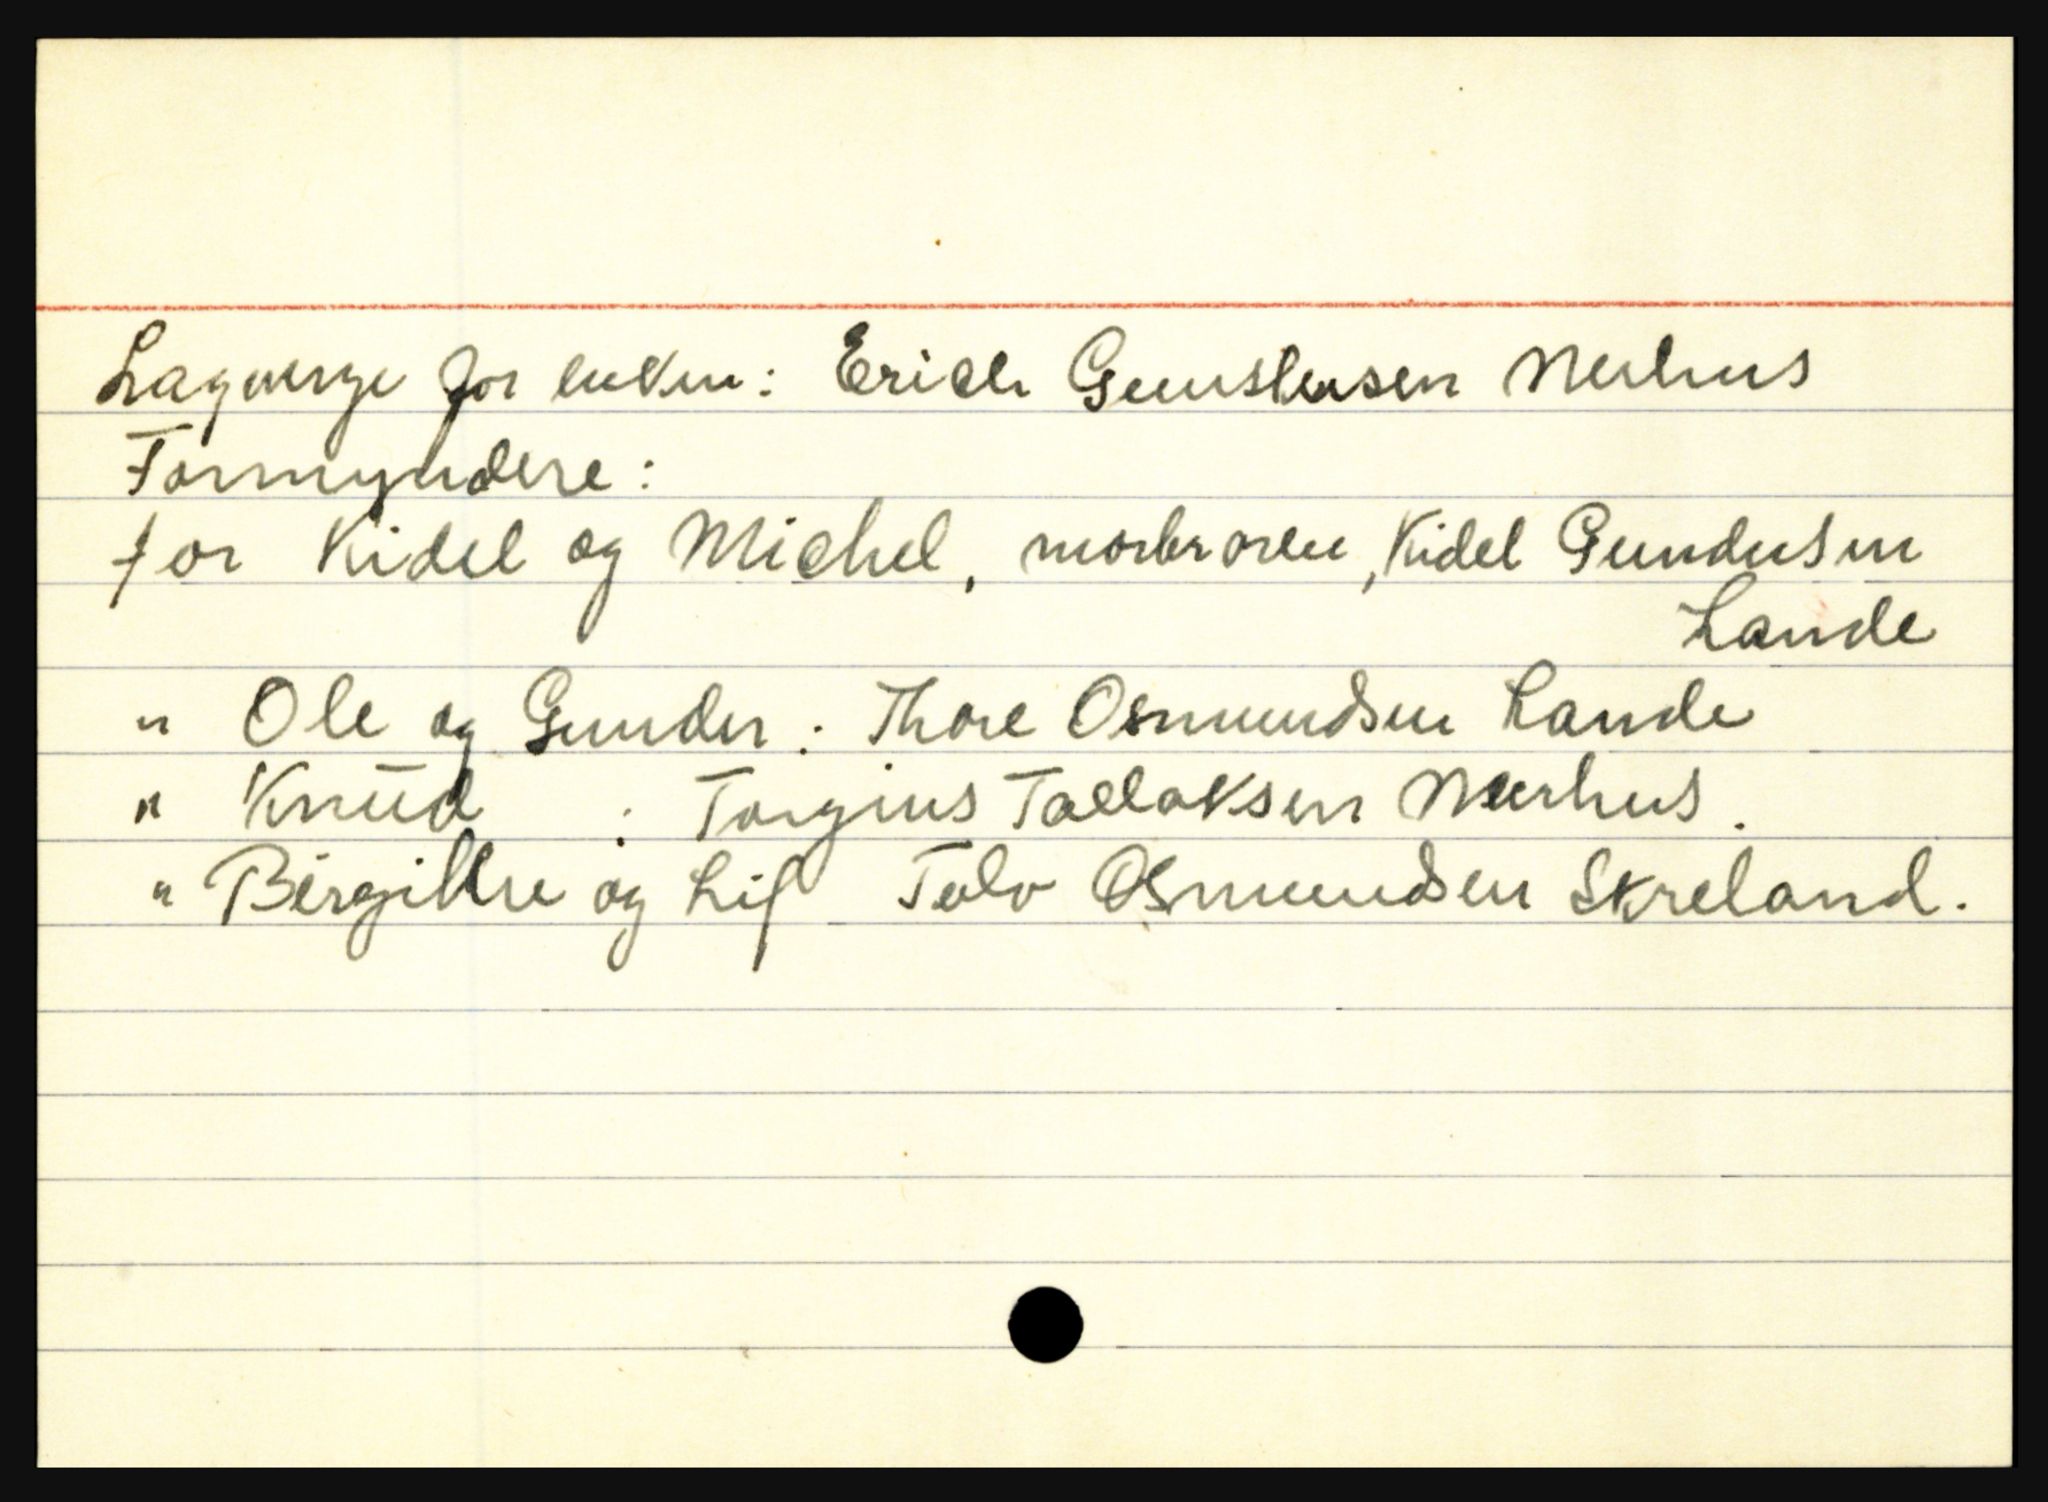 Lagverge for enken: Erich Gunstensen Nerhus
Formyndere:
for Kidel og Michel, morbroren, Kidel Gundersen
Lande
" Ole og Gunder : Thore Osmundsen Lande
" Knud : Torgius Tallaksen Neerhus.
" Bergitthe og Lif Tolv Osmundsen Skreland.